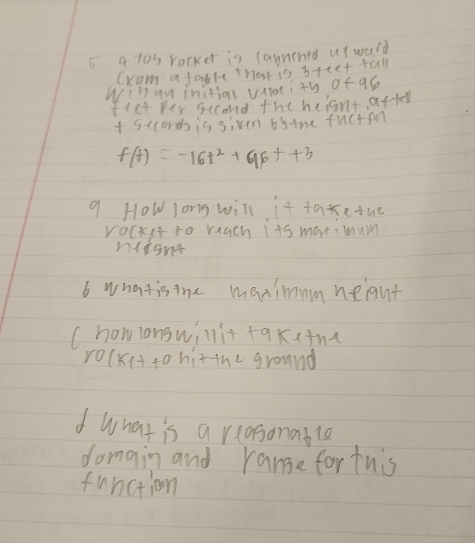 5 a toy rocket is launched upward
from a table that is 3 feet tall
with an initial velocity of 96
feet per second the height after
t seconds is given by the fuction
f(t) = -16t² + 96t + 3
a How long will it take the
rocket to reach its maximum
height
b what is the maximum height
c how long will it take the
rocket to hit the ground
d What is a reasonable
domain and range for this
function